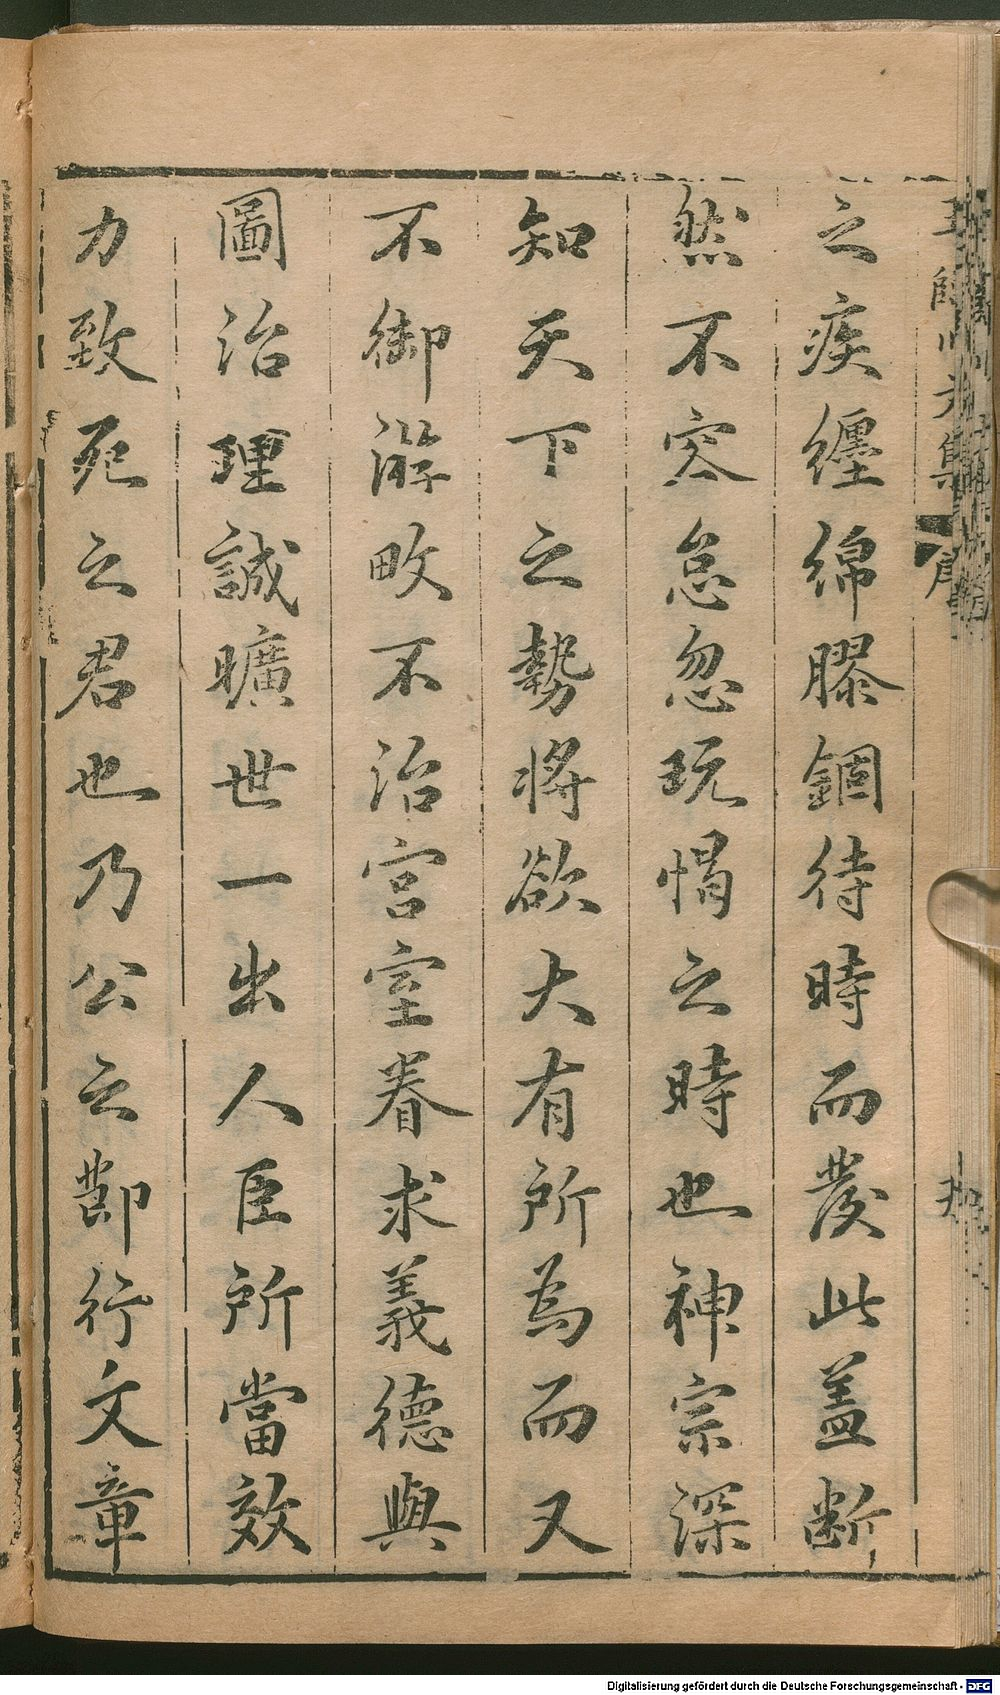 之疾纏綿膠錮待時而發此盖断
然不容怠忽玩愒之時也神宗深
知天下之勢將欲大有所為而又
不御游畋不治宮室眷求義德與
圖治理誠曠世一出人臣所當效
力致死之君也乃公之節行文章
Digitalisierung gefördert durch die Deutsche Forschungsgemeinschaft - DFG